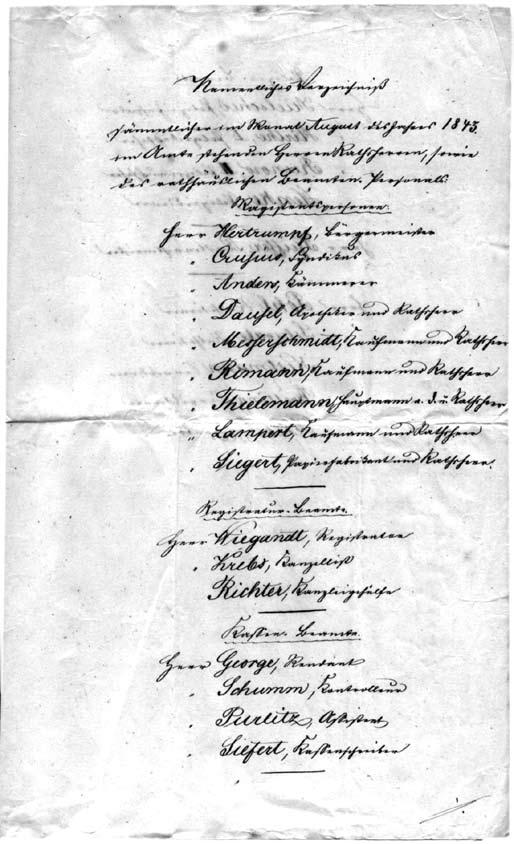 Namentliches Verzeichniß
sämmtlicher im Monat August des Jahres 1843.
im Amte stehenden Herren Rathsherren, sowie
des rathhäuslichen Beamten-Personals.
Magistratspersonen.
Herr Hertrumpf, Bürgermeister
" Crusius, Syndikus
" Anders, Kämmerer
" Dausel, Apotheker und Rathsherr
" Messerschmidt, Kaufmann und Rathsherr
" Rimann, Kaufmann und Rathsherr
" Thielemann, Hauptmann a. d. u. Rathsherr
" Lampert, Kaufmann und Rathsherr
" Siegert, Papierfabrikant und Rathsherr.
Registratur-Beamte.
Herr Wiegandt, Registrator
" Krebs, Kanzellist
Richter, Kanzleigehülfe
Kassen-Beamte.
Herr George, Rendant
" Schumm, Kontrolleur
" Purlitz, Assistent
" Siefert, Kassenschreiber